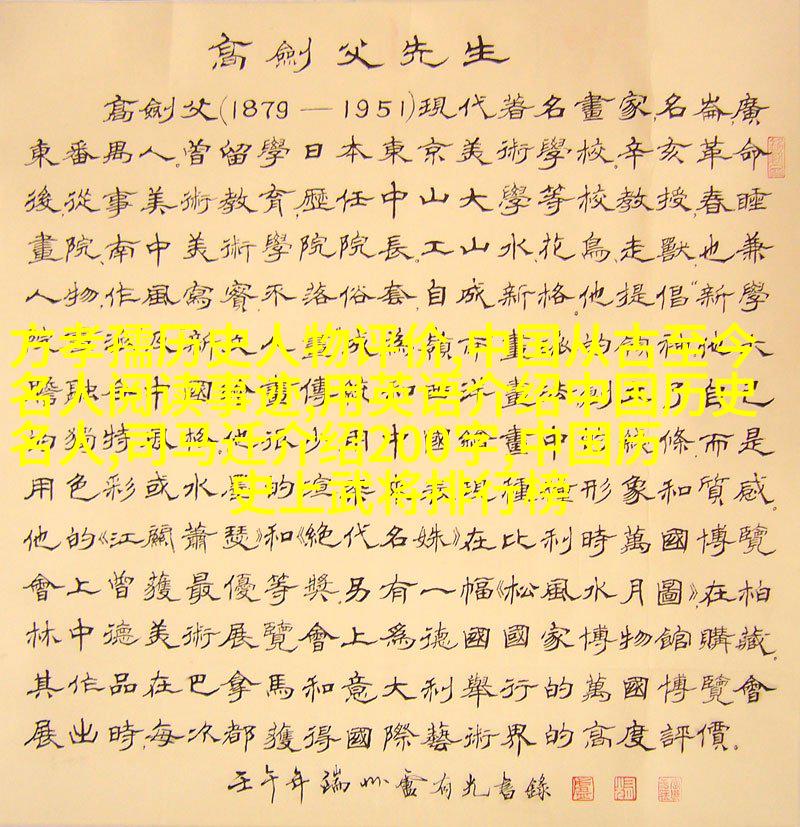 高劍父先生
高劍父(1879—1951)現代著名畫家,名崙,廣
東番禺人.曾留學日本東京美術學校.辛亥革命
後,從事美術教育,歷任中山大學等校教授,春睡
畫院,南中美術學院院長.工山水,花鳥,走獸,也兼
人物,作風寫實,不落俗套,自成新格.他提倡"新學
方孝孺历史人物评价,中国从古至今
名人阅读事迹,用英语介绍中国历史
名人,司马迁介绍200字,中国历
史上武将排行榜
的獨特風格.他很少用中國繪畫中的線條.而是
用色彩或水墨的渲染來表現種種形象和質感.
他的《江關蕭瑟》和《絕代名姝》在比利時萬國博覽
會上曾獲最優等獎.另有一幅《松風水月圖》,在柏
林中德美術展覽會上爲德國國家博物館購藏.
其作品在巴拿馬和意大利舉行的萬國博覽會
展出時,每次都獲得國際藝術界的高度評價。
壬午年瑞州盧有光書錄